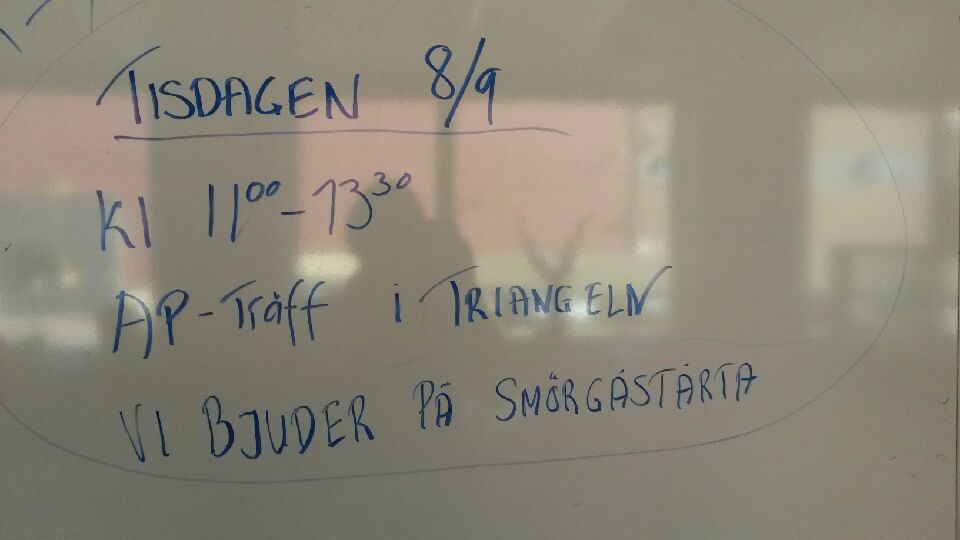 TISDAGEN 8/9
Kl 11⁰⁰-13³⁰
AP-Träff i TRIANGELN
VI BJUDER PÅ SMÖRGÅSTÅRTA